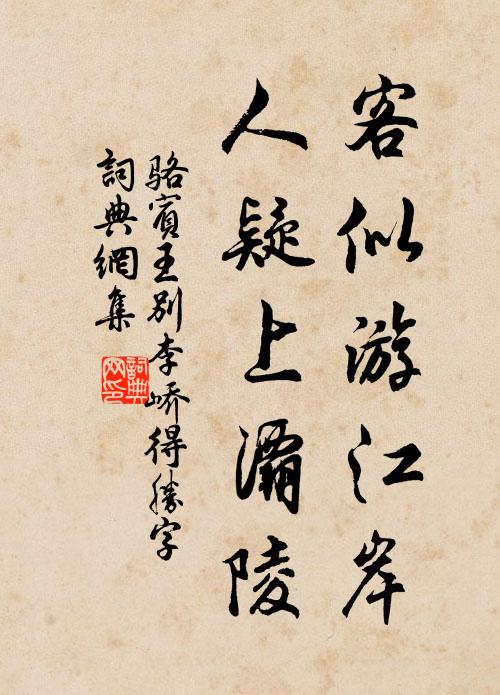 客似游江岸
人疑上灞陵
骆賓王别李峤得勝字
詞典網集
詞典
网印